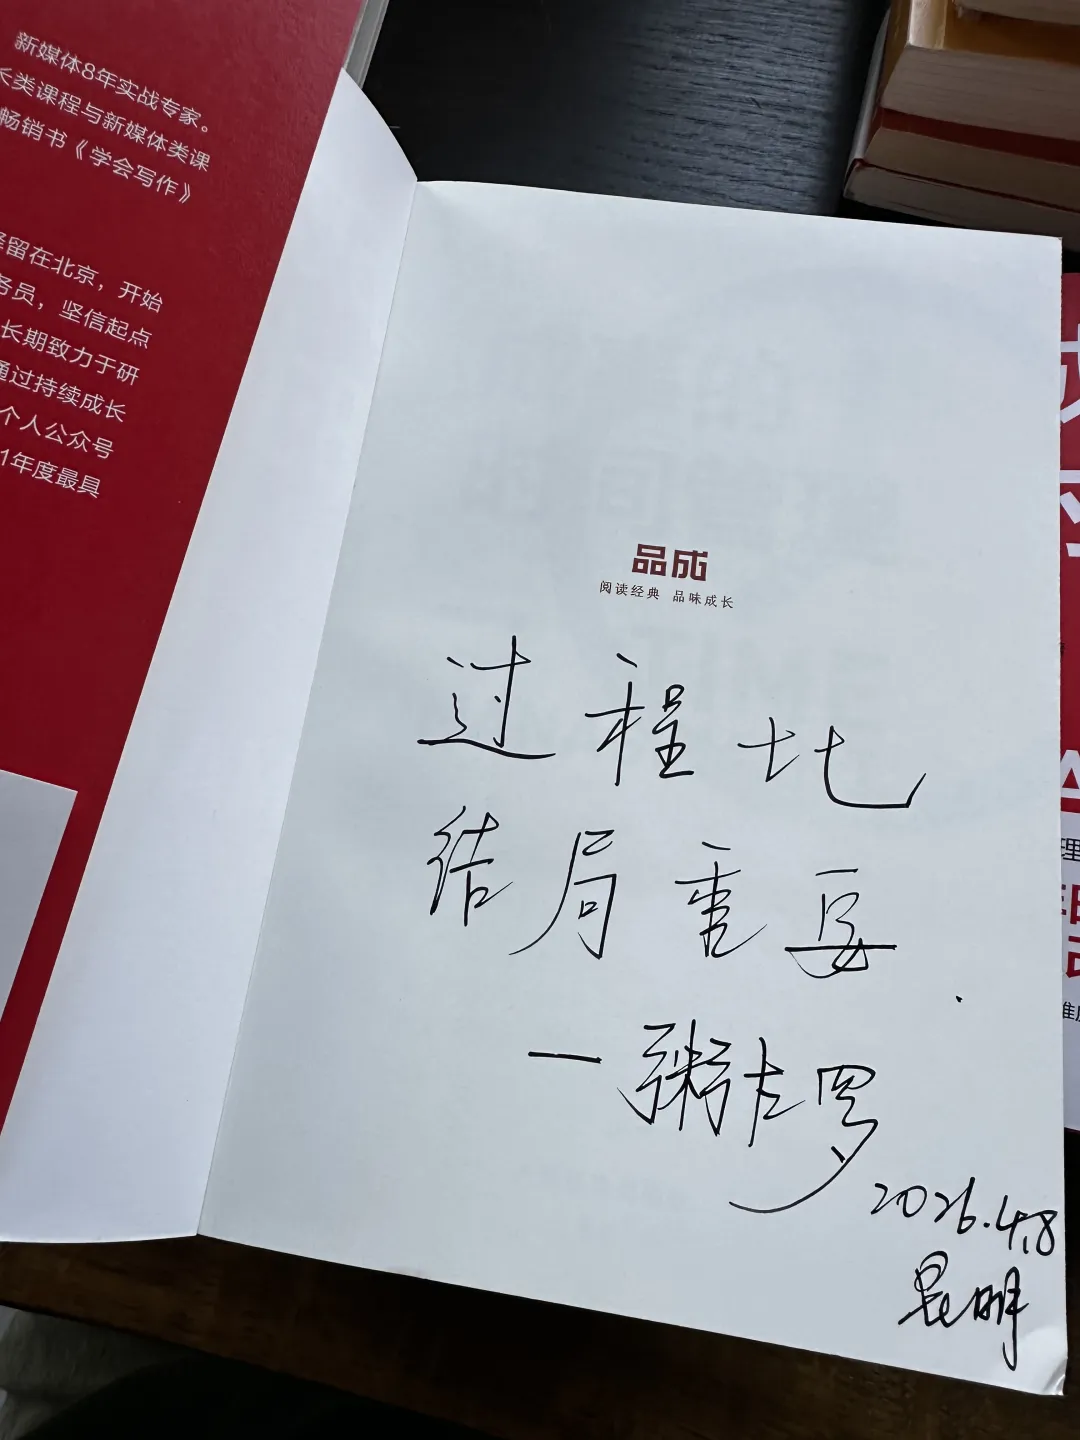 新媒体8年实战专家。
长类课程与新媒体类课
畅销书《学会写作》
留在北京，开始
务员，坚信起点
长期致力于研
通过持续成长
个人公众号
1年度最具
品成
阅读经典 品味成长
过程比
结局重要.
—粥左罗
2026.4.8
昆明
理